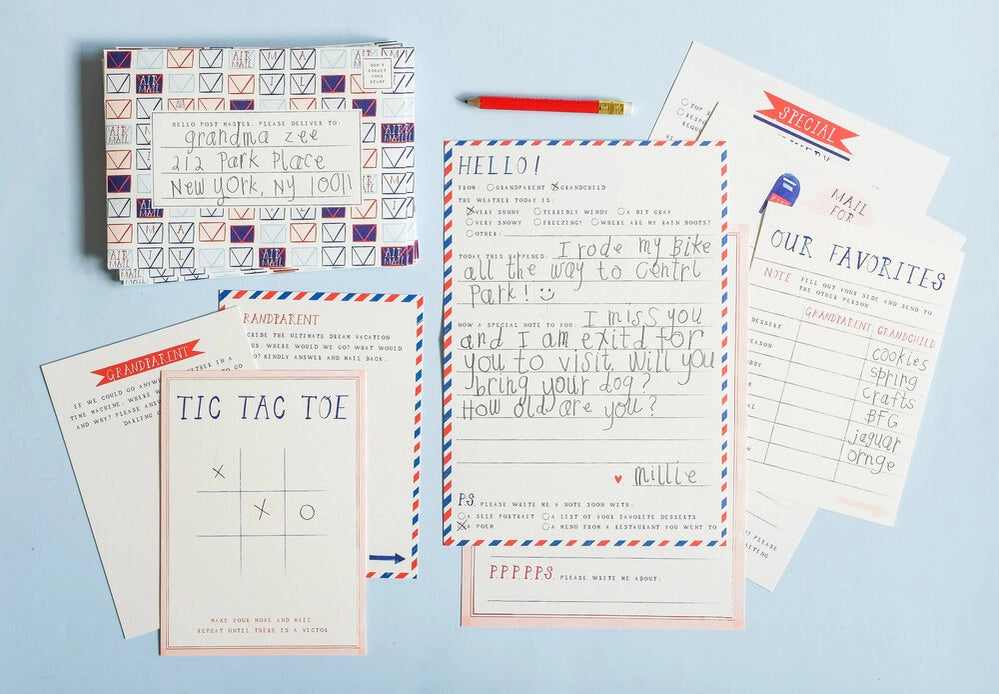 AIR MAIL
DON'T
FORGET
YOUR
STAMP
HELLO POST MASTER, PLEASE DELIVER TO:
grandma zee
212 Park Place
New york, NY 10011
GRANDPARENT
IF WE COULD GO ANYW
TIME MACHINE, WHERE W
AND WHY? PLEASE ANS
DARLING
ETHER IN A
TO GO
RANDPARENT
CRIBE THE ULTIMATE DREAM VACATION
US. WHERE WOULD WE GO? WHAT WOULD
DO? KINDLY ANSWER AND MAIL BACK.
TIC TAC TOE
X
X O
MAKE YOUR MOVE AND MAIL.
REPEAT UNTIL THERE IS A VICTOR
HELLO!
FROM: GRANDPARENT GRANDCHILD
THE WEATHER TODAY IS:
VERY SUNNY TERRIBLY WINDY A BIT GRAY
VERY SNOWY FREEZING! WHERE ARE MY RAIN BOOTS?
OTHER:
TODAY THIS HAPPENED: I rode my Bike
all the way to Centrl
Park! :)
NOW A SPECIAL NOTE TO YOU: I miss you
and I am exitd for
you to visit. Will you
bring your dog?
How old are you?
♥ Millie
P.S. PLEASE WRITE ME A NOTE SOON WITH:
A SELF PORTRAIT A LIST OF YOUR FAVORITE DESSERTS
A POEM A MENU FROM A RESTAURANT YOU WENT TO
P.P.P.P.P.S. PLEASE WRITE ME ABOUT:
SPECIAL
MAIL
FOR
OUR FAVORITES
NOTE FILL OUT YOUR SIDE AND SEND TO
THE OTHER PERSON.
GRANDPARENT GRANDCHILD
DESSERT cookies
EASON spring
BBY crafts
BFG
jaguar
ornge
PLEASE